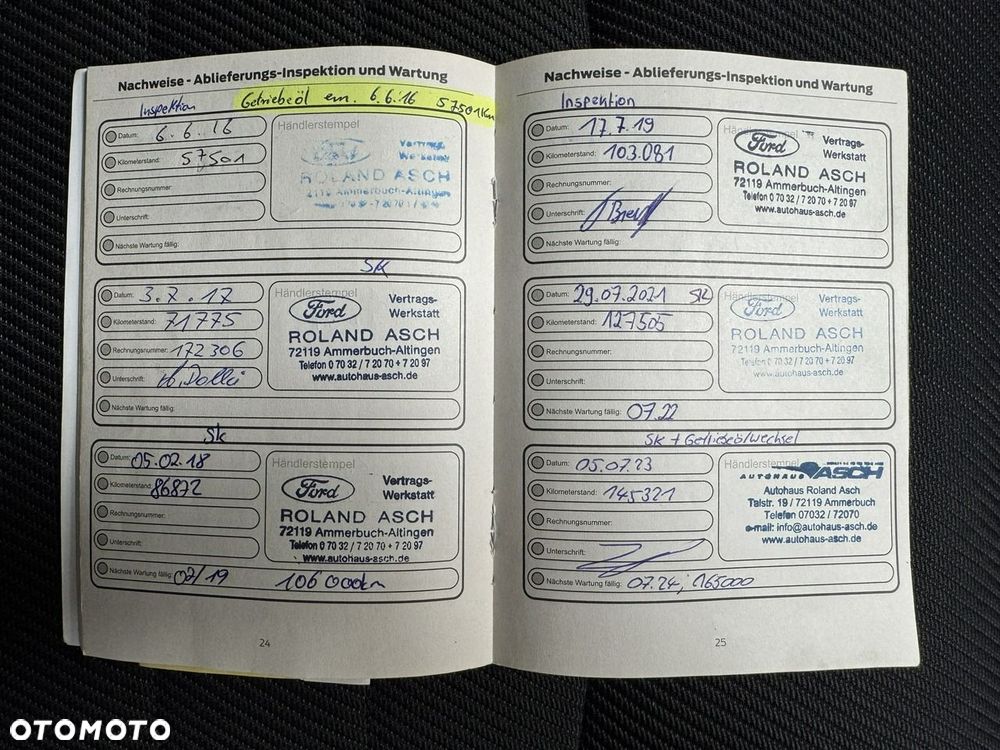 Nachweise - Ablieferungs-Inspektion und Wartung
Inspektion
Getriebeöl ern. 6.6.16 57501 Km
Datum: 6.6.16
Kilometerstand: 57501
Rechnungsnummer:
Unterschrift:
Nächste Wartung fällig:
Händlerstempel
Ford
Vertrags-
Werkstatt
ROLAND ASCH
72119 Ammerbuch-Altingen
SK
Datum: 3.7.17
Kilometerstand: 71775
Rechnungsnummer: 172306
Unterschrift:
Nächste Wartung fällig:
Händlerstempel
Ford
Vertrags-
Werkstatt
ROLAND ASCH
72119 Ammerbuch-Altingen
Telefon 0 70 32 / 7 20 70 + 7 20 97
www.autohaus-asch.de
SK
Datum: 05.02.18
Kilometerstand: 86872
Rechnungsnummer:
Unterschrift:
Nächste Wartung fällig: 02/19 106000km
Händlerstempel
Ford
Vertrags-
Werkstatt
ROLAND ASCH
72119 Ammerbuch-Altingen
Telefon 0 70 32 / 7 20 70 + 7 20 97
www.autohaus-asch.de
24
Nachweise - Ablieferungs-Inspektion und Wartung
Inspektion
Datum: 17.7.19
Kilometerstand: 103.081
Rechnungsnummer:
Unterschrift:
Nächste Wartung fällig:
Händlerstempel
Ford
Vertrags-
Werkstatt
ROLAND ASCH
72119 Ammerbuch-Altingen
Telefon 0 70 32 / 7 20 70 + 7 20 97
www.autohaus-asch.de
Datum: 29.07.2021 SK
Kilometerstand: 127505
Rechnungsnummer:
Unterschrift:
Nächste Wartung fällig: 07.22
Händlerstempel
Ford
Vertrags-
Werkstatt
ROLAND ASCH
72119 Ammerbuch-Altingen
Telefon 0 70 32 / 7 20 70 + 7 20 97
www.autohaus-asch.de
SK + Getriebeölwechsel
Datum: 05.07.23
Kilometerstand: 145321
Rechnungsnummer:
Unterschrift:
Nächste Wartung fällig: 07.24; 165000
Händlerstempel
AUTOHAUS ASCH
Autohaus Roland Asch
Talstr. 19 / 72119 Ammerbuch
Telefon 07032 / 72070
e-mail: info@autohaus-asch.de
www.autohaus-asch.de
25
OTOMOTO